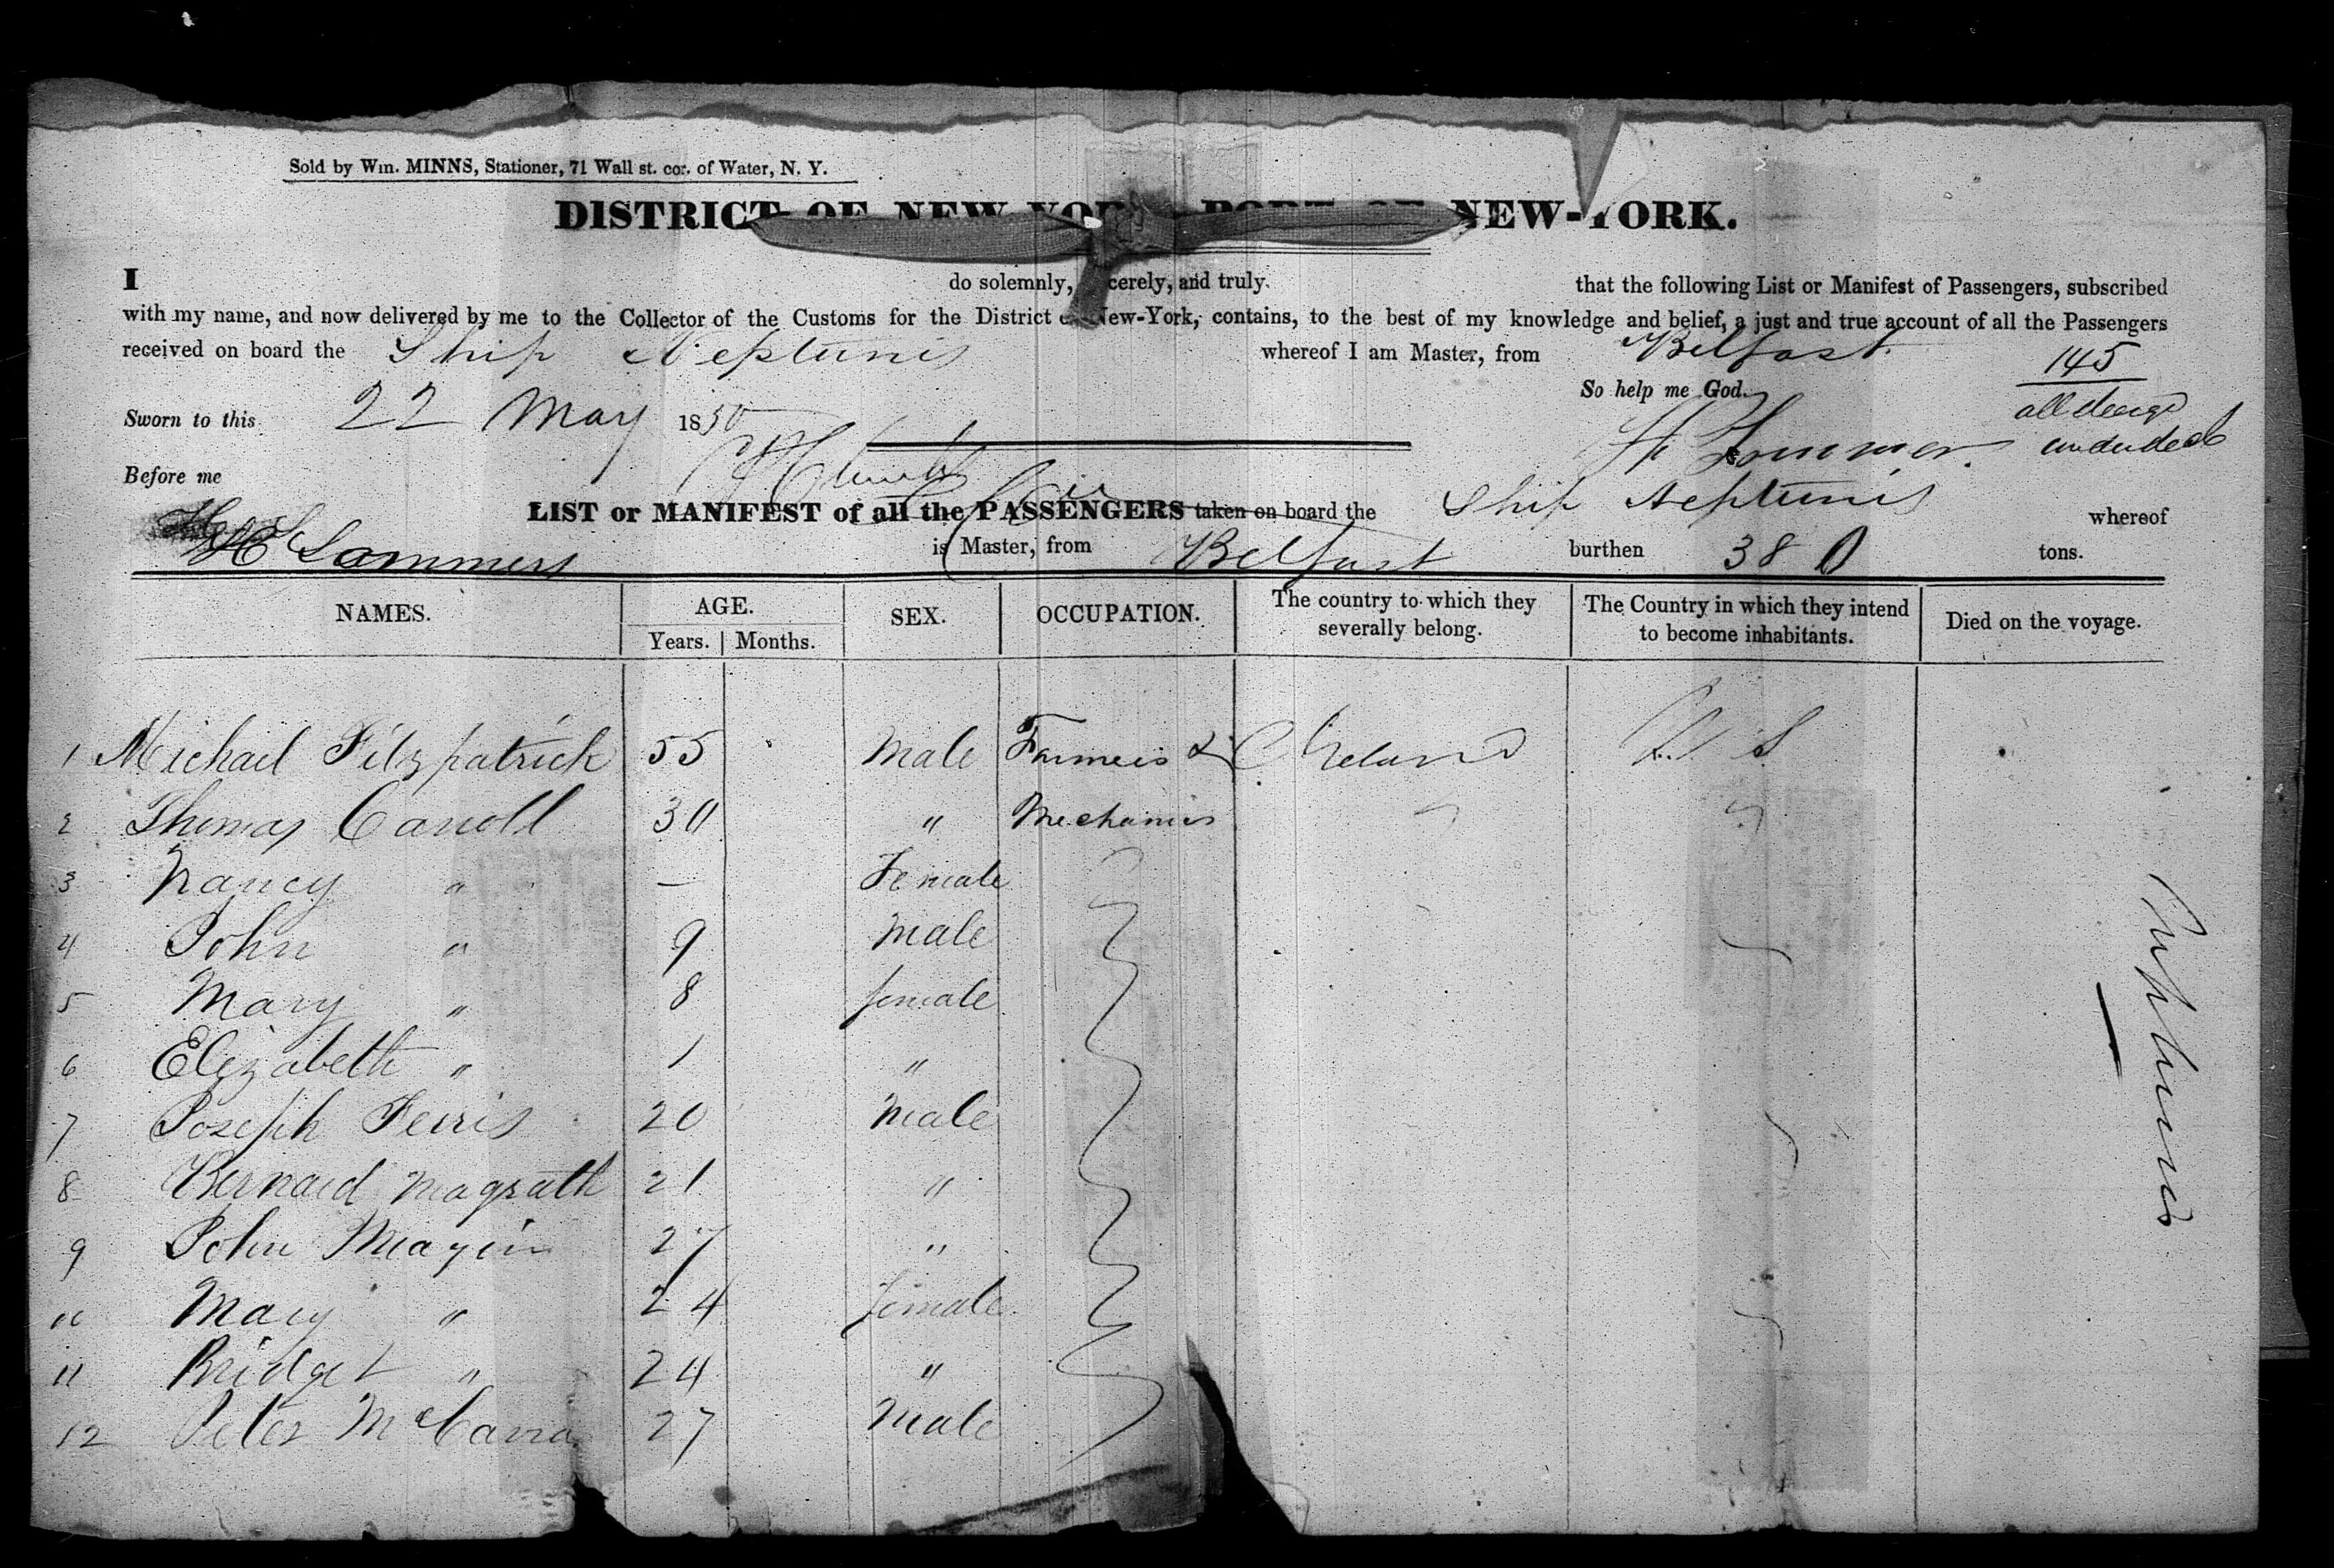 Sold by Wm. MINNS, Stationer, 71 Wall st. cor. of Water, N. Y.
DISTRICT OF NEW-YORK, PORT OF NEW-YORK.
I do solemnly, sincerely, and truly that the following List or Manifest of Passengers, subscribed
with my name, and now delivered by me to the Collector of the Customs for the District of New-York, contains, to the best of my knowledge and belief, a just and true account of all the Passengers
received on board the Ship Neptunis whereof I am Master, from Belfast.
145
So help me God.
Sworn to this 22 May 1850
all
Before me
LIST or MANIFEST of all the PASSENGERS taken on board the Ship Neptunis whereof
H Sommers is Master, from Belfast burthen 380 tons.
NAMES. AGE. SEX. OCCUPATION. The country to which they severally belong. The Country in which they intend to become inhabitants. Died on the voyage.
Years. Months.
1 Michael Fitzpatrick 55 Male Farmers & Ireland U. S
2 Thomas Carroll 30 " Mechanics
3 Nancy " — Female
4 John " 9 Male
5 Mary " 8 female
6 Elizabeth " 1 "
7 Joseph Ferris 20 Male
8 Bernard Magrath 21 "
9 John 27 "
10 Mary " 24 female
11 Bridget " 24 "
12 Peter 27 Male
Neptunis